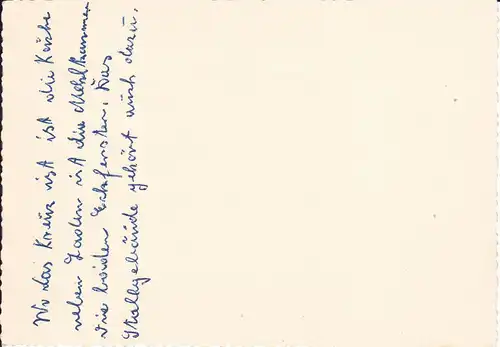 Wo das Kreuz ist ist die Küche
neben Laden ist die Mehlkammer
Die beiden Eckfenster. Das
Stallgebäude gehört auch dazu.